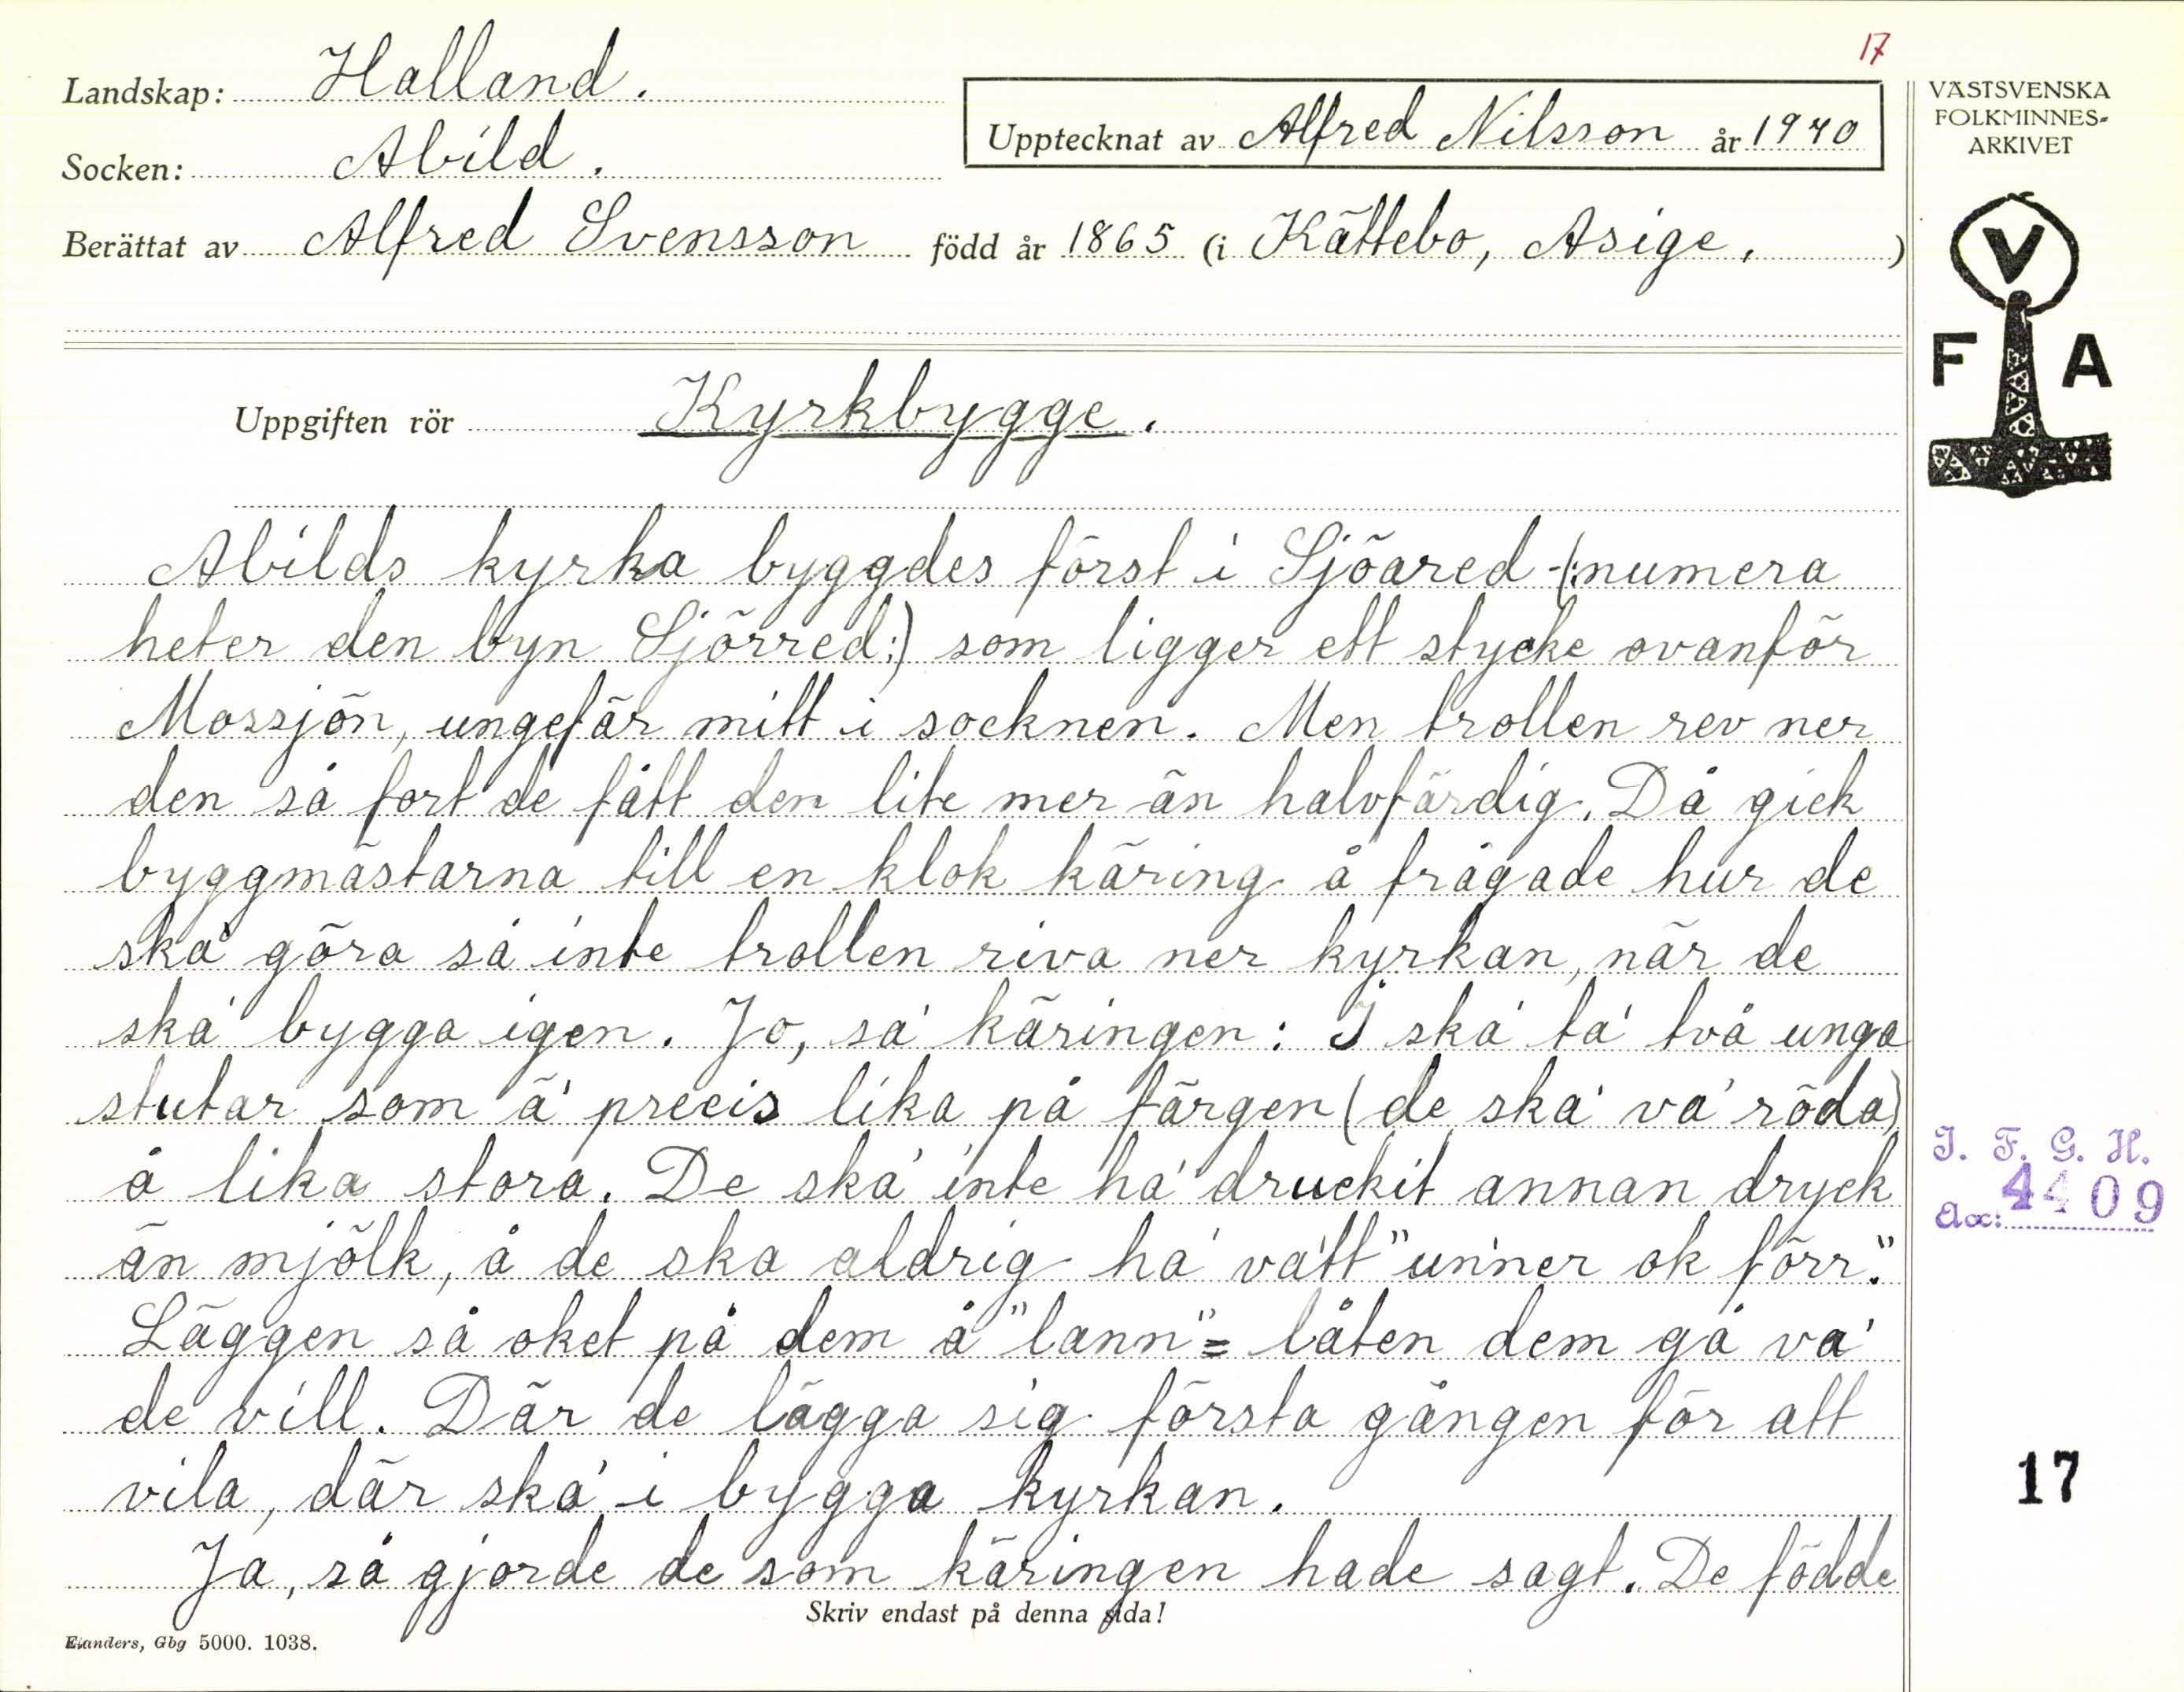 17
Landskap: Halland.
Upptecknat av Alfred Nilsson år 1940
VÄSTSVENSKA
FOLKMINNES-
ARKIVET
Socken: Abild.
Berättat av Alfred Svensson född år 1865 (i Kättebo, Asige, )
V
F A
Uppgiften rör Kyrkbygge.
Abilds kyrka byggdes först i Sjöared (:numera
heter den byn Sjörred:) som ligger ett stycke ovanför
Mossjön, ungefär mitt i socknen. Men trollen rev ner
den så fort de fått den lite mer än halvfärdig. Då gick
byggmästarna till en klok käring å frågade hur de
ska' göra så inte trollen riva ner kyrkan, när de
ska' bygga igen. Jo, sa' käringen: I ska' ta' två unga
stutar som ä' precis lika på färgen (de ska' va' röda)
å lika stora. De ska' inte ha' druckit annan dryck
än mjölk, å de ska aldrig ha' va'tt "un'ner ok förr".
Läggen så oket på dem å "lann" = låten dem gå va'
de vill. Där de lägga sig första gången för att
vila, där ska' i bygga kyrkan.
Ja, så gjorde de som käringen hade sagt. De födde
Skriv endast på denna sida!
Elanders, Gbg 5000. 1038.
I. F. G. H.
Acc: 4409
17